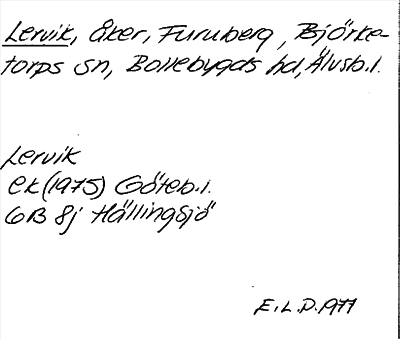 Lervik, åker, Furuberg, Björke-
torps sn, Bollebygds hd, Älvsb.l.
Lervik
ek (1975) Göteb.l.
6B 8j Hällingsjö
E.L.D. 1977